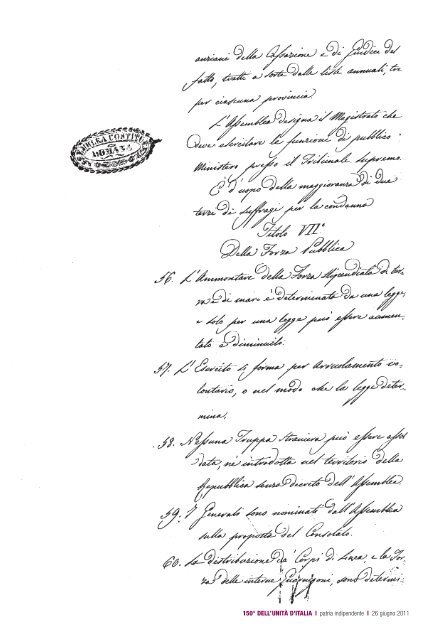 anziani della Cassazione e di Giudici del
fatto, tratti a sorte dalle liste annuali, tre
per ciascuna provincia
L'Assemblea designa il Magistrato che
deve esercitare le funzioni di pubblico
Ministero presso il Tribunale supremo
È d'uopo della maggioranza di due
terzi di suffragi per la condanna
Titolo VII.°
Della Forza Pubblica
56. L'Ammontare della Forza stipendiata di ter-
ra e di mare è determinato da una legge,
e solo per una legge può essere aumen-
tato o diminuito.
57. L'Esercito si forma per arruolamento vo-
lontario, o nel modo che la legge deter-
mina.
58. Nessuna Truppa straniera può essere assol-
data, nè introdotta nel territorio della
Repubblica senza decreto dell'Assemblea
59. I Generali sono nominati dall'Assemblea
sulla proposta del Consolato.
60. La distribuzione de' Corpi di linea e la For-
za delle interne Guarnigioni, sono determi-
150° DELL'UNITÀ D'ITALIA | patria indipendente | 26 giugno 2011